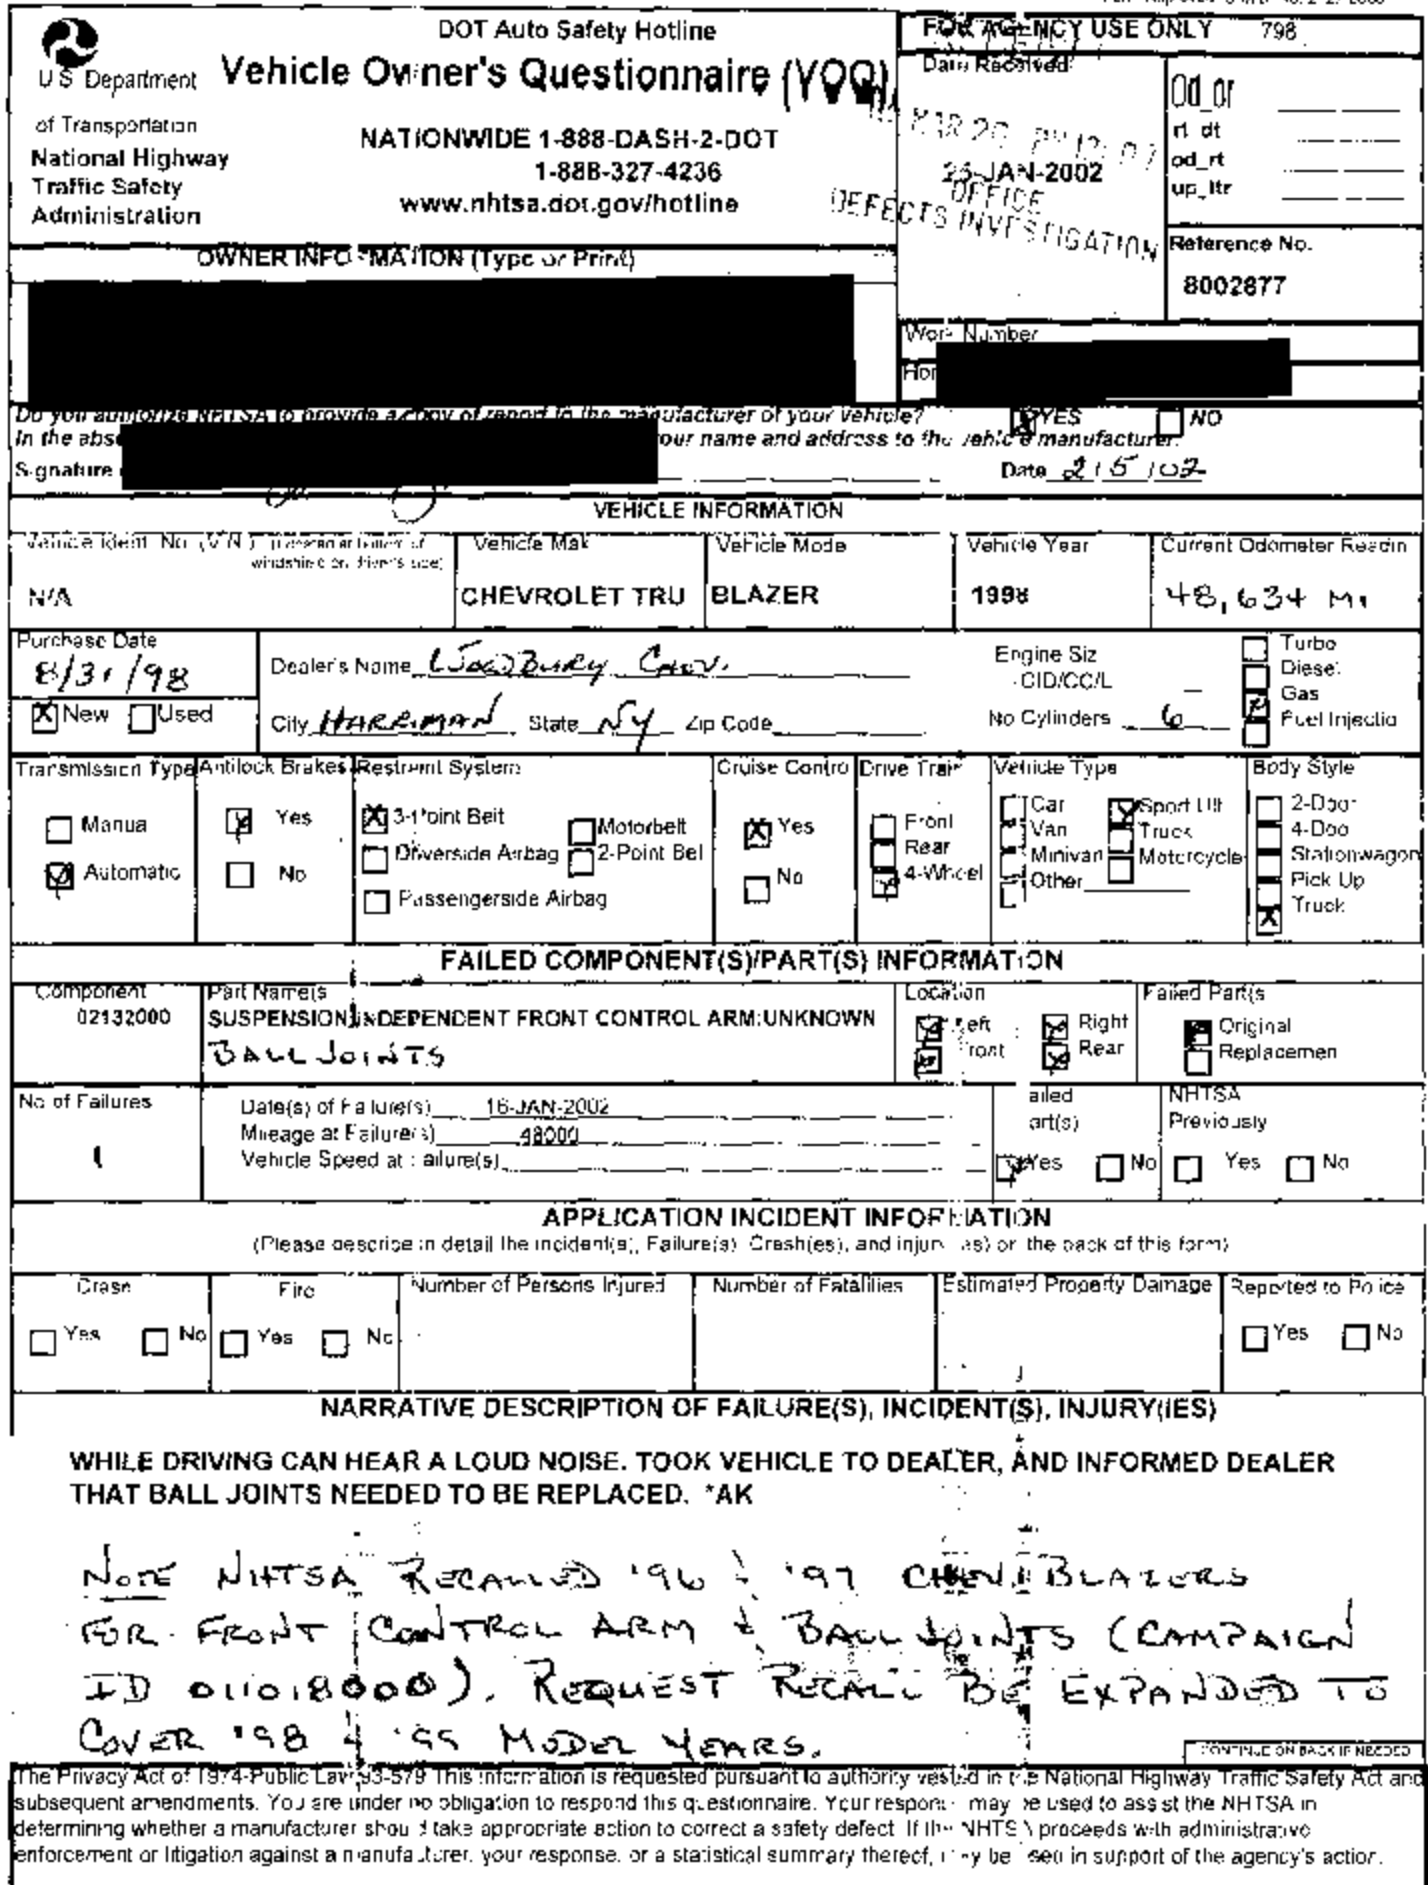 DOT Auto Safety Hotline
Vehicle Owner's Questionnaire (VOQ)
NATIONWIDE 1-888-DASH-2-DOT
1-888-327-4236
www.nhtsa.dot.gov/hotline
U S Department
of Transportation
National Highway
Traffic Safety
Administration
FOR AGENCY USE ONLY 798
Date Received
25-JAN-2002
OFFICE
DEFECTS INVESTIGATION
Od_or
rt_dt
od_rt
up_ltr
Reference No.
8002877
OWNER INFORMATION (Type or Print)
Work Number
Do you authorize NHTSA to provide a copy of report to the manufacturer of your vehicle? YES NO
In the abs our name and address to the vehicle manufacturer.
Signature Date 2/5/02
VEHICLE INFORMATION
Vehicle Ident. No. (V.I.N.)
N/A
Vehicle Mak
CHEVROLET TRU
Vehicle Mode
BLAZER
Vehicle Year
1998
Current Odometer Readin
48,634 Mi
Purchase Date
8/31/98
New Used
Dealer's Name Woodbury Chev.
City HARRIMAN State NY Zip Code
Engine Siz
CID/CC/L
No Cylinders 6
Turbo
Diesel
Gas
Fuel Injectio
Transmission Type
Manua
Automatic
Antilock Brakes
Yes
No
Restraint System
3-Point Belt
Motorbelt
Driverside Airbag
2-Point Bel
Passengerside Airbag
Cruise Contro
Yes
No
Drive Train
Front
Rear
4-Wheel
Vehicle Type
Car
Van
Minivan
Other
Sport Util
Truck
Motorcycle
Body Style
2-Door
4-Doo
Stationwagon
Pick Up
Truck
FAILED COMPONENT(S)/PART(S) INFORMATION
Component
02132000
Part Name(s
SUSPENSION:INDEPENDENT FRONT CONTROL ARM:UNKNOWN
BALL JOINTS
Location
Left Right
Front Rear
Failed Part(s
Original
Replacemen
No of Failures
1
Date(s) of Failure(s) 16-JAN-2002
Mileage at Failure(s) 48000
Vehicle Speed at Failure(s)
ailed
art(s)
Yes No
NHTSA
Previously
Yes No
APPLICATION INCIDENT INFORMATION
(Please describe in detail the incident(s), Failure(s), Crash(es), and injury(ies) on the back of this form)
Crash
Yes No
Fire
Yes No
Number of Persons Injured
Number of Fatalities
Estimated Property Damage
Reported to Police
Yes No
NARRATIVE DESCRIPTION OF FAILURE(S), INCIDENT(S), INJURY(IES)
WHILE DRIVING CAN HEAR A LOUD NOISE. TOOK VEHICLE TO DEALER, AND INFORMED DEALER
THAT BALL JOINTS NEEDED TO BE REPLACED. *AK
NOTE NHTSA RECALLED '96 & '97 CHEV. BLAZERS
FOR FRONT CONTROL ARM & BALL JOINTS (CAMPAIGN
ID 011018000). REQUEST RECALL BE EXPANDED TO
COVER '98 & '99 MODEL YEARS.
CONTINUE ON BACK IF NEEDED
The Privacy Act of 1974-Public Law 93-579 This information is requested pursuant to authority vested in the National Highway Traffic Safety Act and
subsequent amendments. You are under no obligation to respond this questionnaire. Your response may be used to assist the NHTSA in
determining whether a manufacturer should take appropriate action to correct a safety defect. If the NHTSA proceeds with administrative
enforcement or litigation against a manufacturer, your response, or a statistical summary thereof, may be used in support of the agency's action.